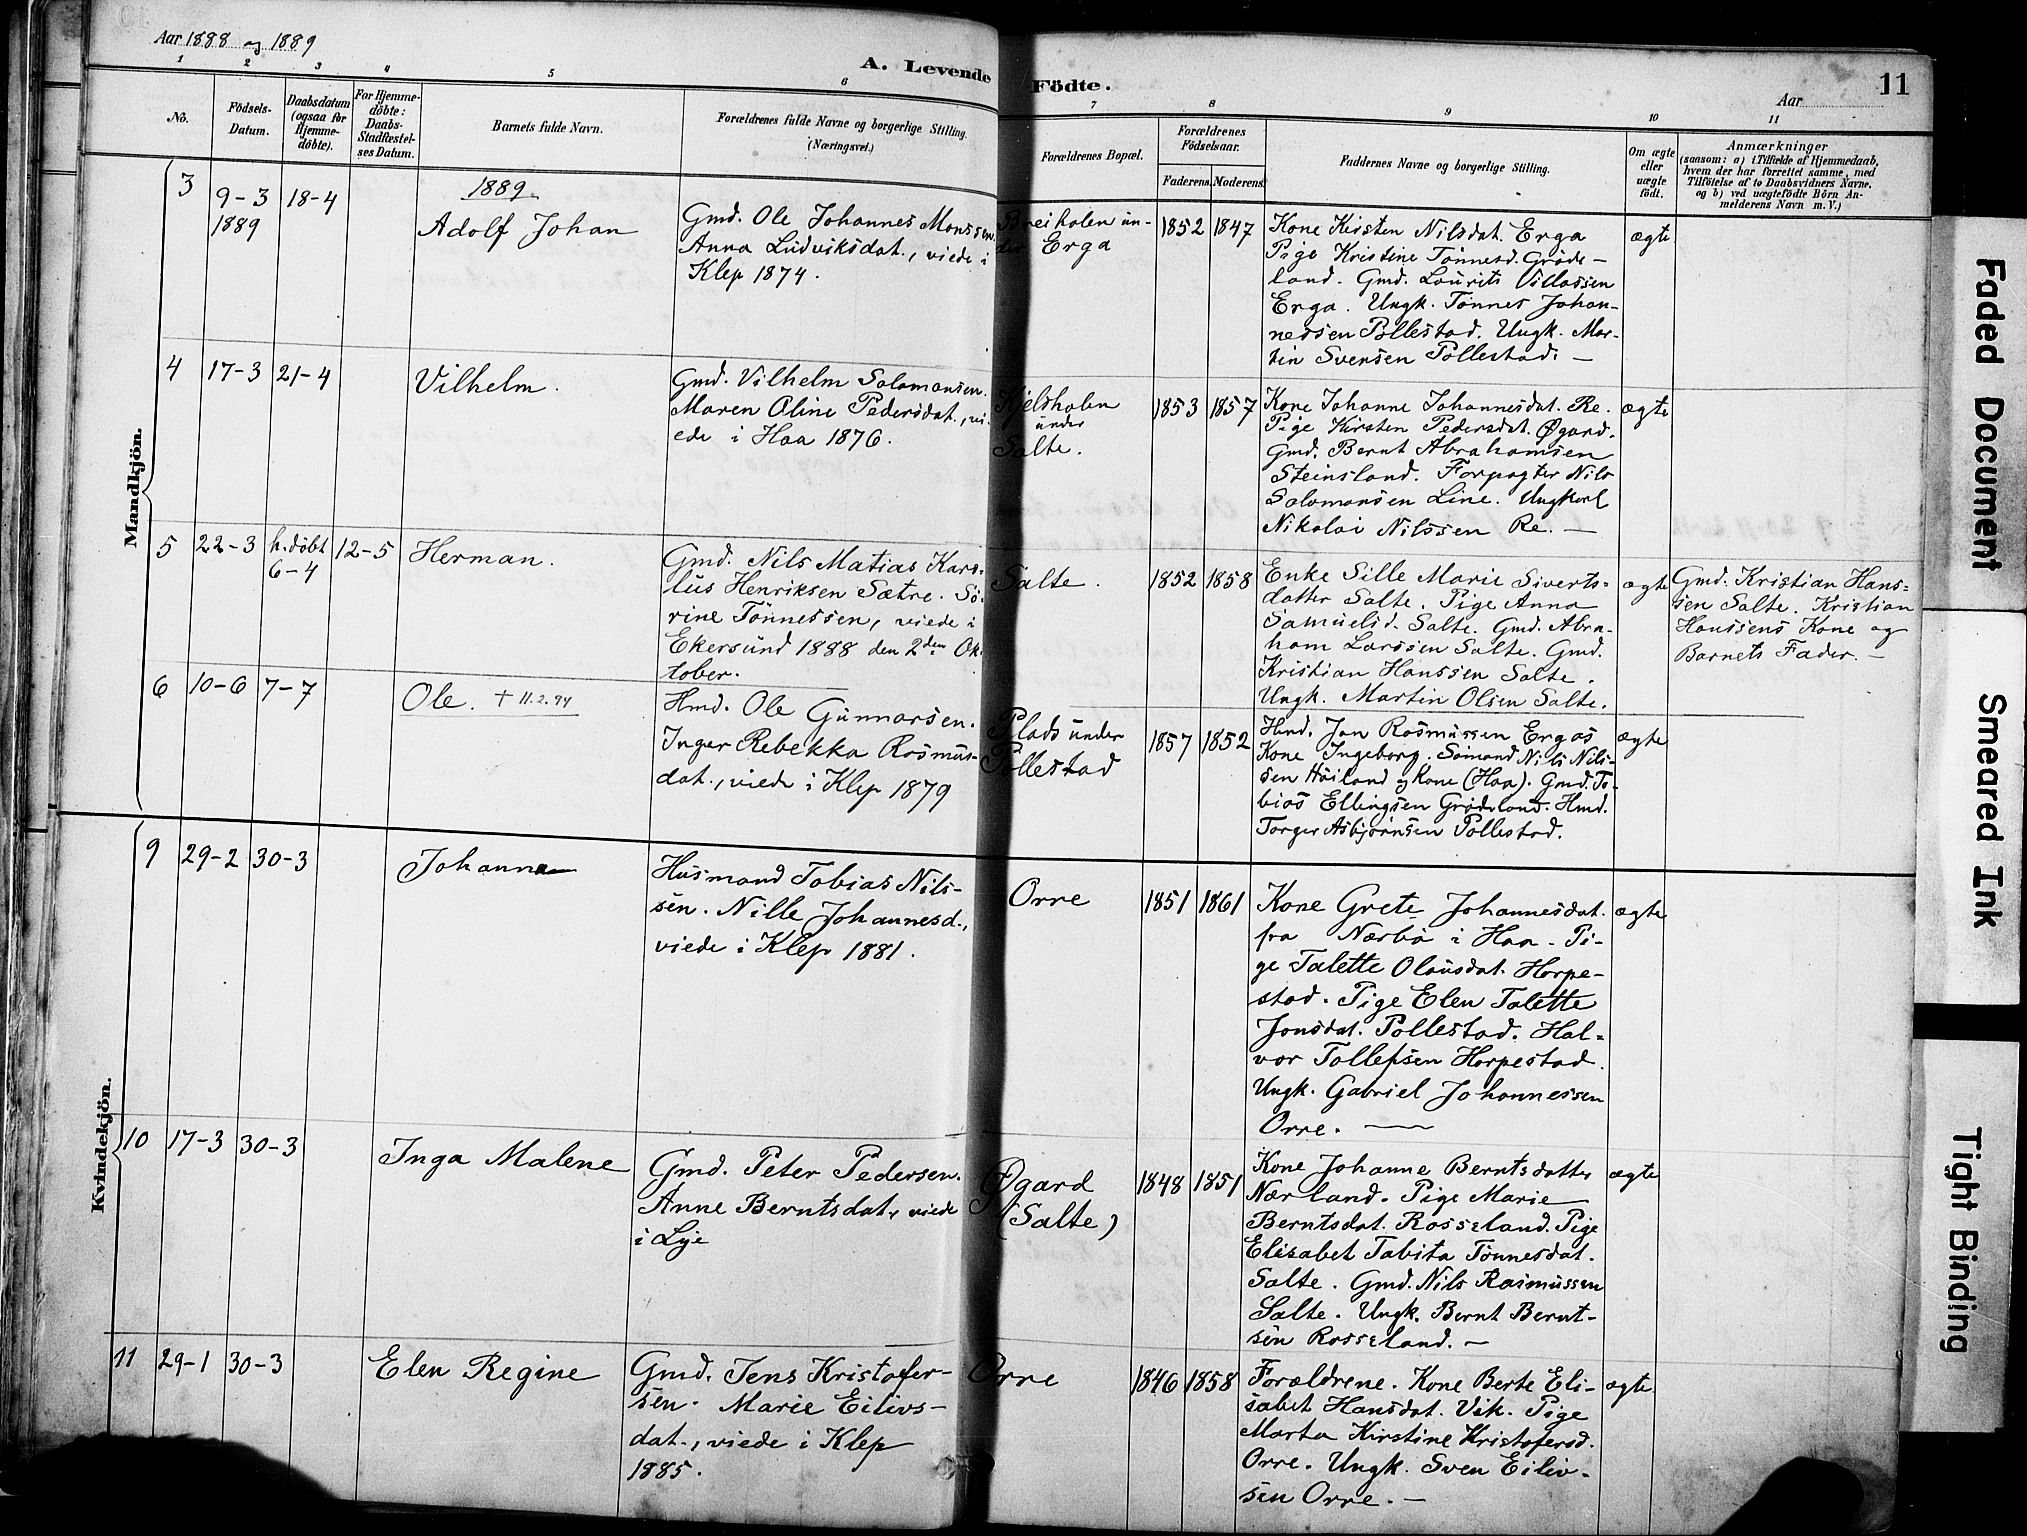 Aar 1888 og 1889
A. Levende Födte.
Aar
11
1 2 3 4 5 6 7 8 9 10 11
No.
Födsels-
Datum.
Daabsdatum
(ogsaa for
Hjemme-
döbte).
For Hjemme-
döbte:
Daabs-
Stadfæstel-
ses Datum.
Barnets fulde Navn.
Forældrenes fulde Navne og borgerlige Stilling.
(Næringsvei.)
Forældrenes Bopæl.
Forældrenes
Födselsaar.
Faderens. Moderens.
Faddernes Navne og borgerlige Stilling.
Om ægte
eller
uægte
födt.
Anmærkninger
(saasom: a) i Tilfælde af Hjemmedaab,
hvem der har forrettet samme, med
Tilföielse af to Daabsvidners Navne.
og b) ved uægtefödte Börn An-
melderens Navn m. V.)
Mandkjön.
3
9-3
1889
18-4
1889
Adolf Johan
Gmd. Ole Johannes Monssen.
Anna Ludviksdat., viede i
Klep 1874.
Breiholen un-
der Erga
1852 1847
Kone Kirsten Nilsdat. Erga
Pige Kristine Tønnesd. Grøde-
land. Gmd. Laurits Villassen
Erga. Ungk. Tønnes Johan-
nessen Pollestad. Ungk. Mar-
tin Svensen Pollestad. —
ægte
4
17-3
21-4
Vilhelm.
Gmd. Vilhelm Salomonsen.
Maren Oline Pedersdat., vi-
ede i Haa 1876.
Kjelsholen
under
Salte.
1853 1857
Kone Johanne Johannesdat. Re.
Pige Kirsten Pedersdat. Øgard.
Gmd. Bernt Abrahamsen
Steinsland. Forpagter Nils
Salomonsen Line. Ungkarl
Nikolai Nilssen Re. —
ægte
5
22-3
h. døbt
6-4
12-5
Herman.
Gmd. Nils Matias Karo-
lius Henriksen Sætre. Sø-
rine Tønnessen, viede i
Ekersund 1888 den 2den Ok-
tober.
Salte.
1852 1858
Enke Sille Marie Siverts-
datter Salte. Pige Anna
Samuelsd. Salte. Gmd. Abra-
ham Larssen Salte. Gmd.
Kristian Hanssen Salte.
Ungk. Martin Olsen Salte.
ægte
Gmd. Kristian Hans-
sen Salte. Kristian
Hanssens Kone og
Barnets Fader. —
6
10-6
7-7
Ole. + 11.2.94
Hmd. Ole Gunnarsen.
Inger Rebekka Rasmus-
dat., viede i Klep 1879
Plads under
Pollestad
1857 1852
Hmd. Jan Rasmussen Ergas
Kone Ingeborg. Sømand Nils Nils-
sen Høiland og Kone (Haa). Gmd. To-
bias Ellingsen Grødeland. Hmd.
Torger Asbjørnsen Pollestad.
ægte
Kvindekjön.
9
29-2
30-3
Johanna
Husmand Tobias Nils-
sen. Nille Johannesd.,
viede i Klep 1881.
Orre
1851 1861
Kone Grete Johannesdat.
fra Nærbø i Haa. Pi-
ge Talette Olausdat. Horpe-
stad. Pige Elen Talette
Jonsdat. Pollestad. Hal-
vor Tollefsen Horpestad.
Ungk. Gabriel Johannessen
Orre. —
ægte
10
17-3
30-3
Inga Malene
Gmd. Peter Pedersen.
Anne Berntsdat., viede
i Lye
Øgard
(Salte)
1848 1851
Kone Johanne Berntsdatter
Nærland. Pige Marie
Berntsdat. Rosseland. Pige
Elisabet Tabita Tønnesdat.
Salte. Gmd. Nils Rasmussen
Salte. Ungk. Bernt Bernt-
sen Rosseland. —
ægte
11
29-1
30-3
Elen Regine
Gmd. Jens Kristofer-
sen. Marie Eilivs-
dat., viede i Klep
1885.
Orre
1846 1858
Forældrene. Kone Berte Eli-
sabet Hansdat. Vik. Pige
Marta Kirstine Kristofersd.
Orre. Ungk. Sven Eiliv-
sen Orre. —
ægte
Faded Document
Smeared Ink
Tight Binding